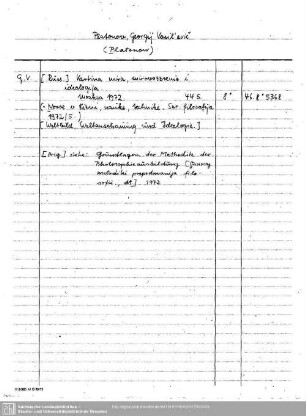 Platonov, Georgij Vasil'evič
(Platonow)
G.V. [Russ.] Kartina mira, mirovozzrenie i
ideologija
Moskva 1972 44 S. 8° 46.8°5368
(= Novoe v žizni, nauke, technike. Ser. filosofija
1972/5.)
[Weltbild, Weltanschauung und Ideologie.]
siehe: Grundlagen der Methodik der
Philosophieausbildung
metodiki prepodavanija filo-
sofii, dt.]. 1972
Sächsische Landesbibliothek -
Staats- und Universitätsbibliothek Dresden